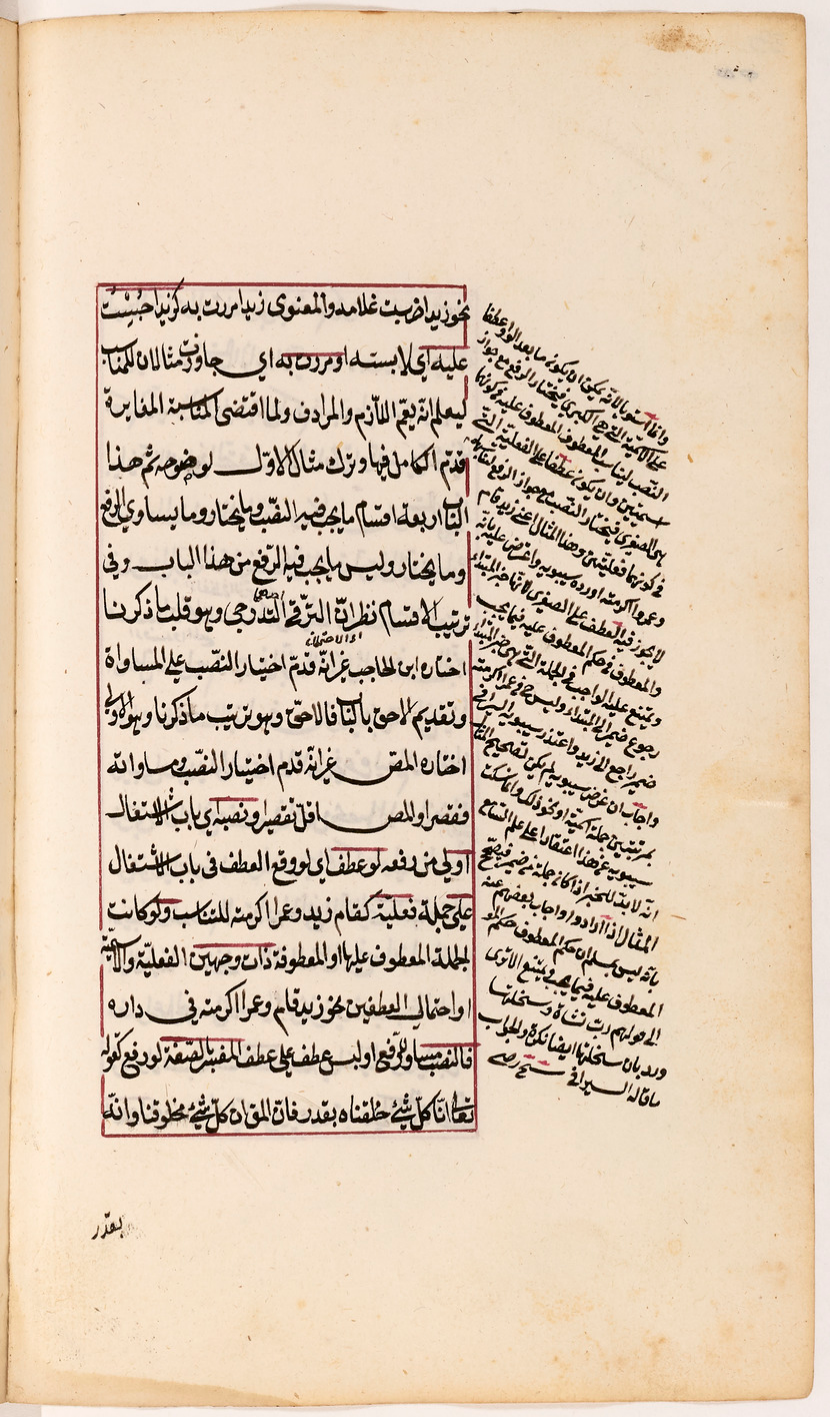 نحو زيدا ضربت غلامه والمعنوى زيدا مررت به كزيدا حُبِسْتُ
عليه اي لابسته او مررت به اى جاوزت مثالان للمناسب
ليعلم انّه يعّم اللّازم والمرادف ولما اقتضى المناسبة المغايرة
قدّم الكامل فيها وترك مثال الاوّل لوضوحه ثم هذا
الباب اربعة اقسام ما يجب فيه النصب وما يختار وما يساوي الرفع
وما يختار وليس ما يجب فيه الرّفع من هذا الباب وفي
ترتيب الاقسام نظر انّ الترقى التدرجى وهو قلب ما ذكرنا
اختاره ابن الحاجب غير انّه قدّم اختيار النصب على المساواة
وتقديم الاحق بالباب فالاحقّ وهو ترتيب ما ذكرنا وهو الاولى
اختاره المص غير انّه قدم اختيار النصب ومساواته
فقصر او المص اقل تقصيرا ونصبه اى باب الاشتغال
اولى من رفعه لو عطف اى لو وقع العطف فى باب الاشتغال
على جملة فعليّة كقام زيد وعمرا اكرمته للمتناسب ولو كانت
الجملة المعطوف عليها او المعطوفة ذات وجهين الفعليّة والاسميّة
او احتمالى العطفين نحو زيد قام وعمرا اكرمته في داره
فالنصب مساو للرّفع او لبس عطف على عطف المفسّر بالصّفة لو رفع كقوله
تعالى انّا كلّ شئ خلقناه بقدر فان المق ان كلّ شئ مخلوقنا وانّه
بقدر
وانّما استويا لانّه يمكن ان يكون ما بعد الواو عطفا
على الاسميّة التى هى الكبرى فيختار الرفع مع جواز
النصب ليناسب المعطوف المعطوف عليه فى كونها
اسميتين وان يكون عطفا على الفعليّة التى
هى الصغرى فيختار النصب مع جواز الرفع ليتناسبا
فى كونهما فعليتين وهذا المثال اعنى زيد قام
وعمروا اكرمته اورده سيبويه واعترض عليه بانّه
لا يجوز فيه العطف على الصغرى لانها خبر المبتدا
والمعطوف فى حكم المعطوف عليه فيما يجب
ويمتنع عليه والواجب فى الجملة التى هى خبر المبتدا
رجوع ضمير الى المبتدا وليس فى عمرا اكرمته
ضمير راجع الى زيد واعتذر سيبويه السيرافى
واجاب ان غرض سيبويه لم يكن تصحيح المثال
بمرتبتين جملة اسميّة او نحو ذلك وانما سكت
سيبويه عن هذا اعتقادا على علم السّامع
انّه لابد للخبر اذا كان جملة من ضمير فيصحّ
المثال اذا ارادوا واجاب بعضهم عنه
بانّه ليس بمسلم ان حكم المعطوف حكم
المعطوف عليه فيما يجب ويمتنع الا ترى
الى قولهم ربّ شاة وسخلتها
ورد بان سخلتها ايضا نكرة والجواب
ما قاله السيرافى